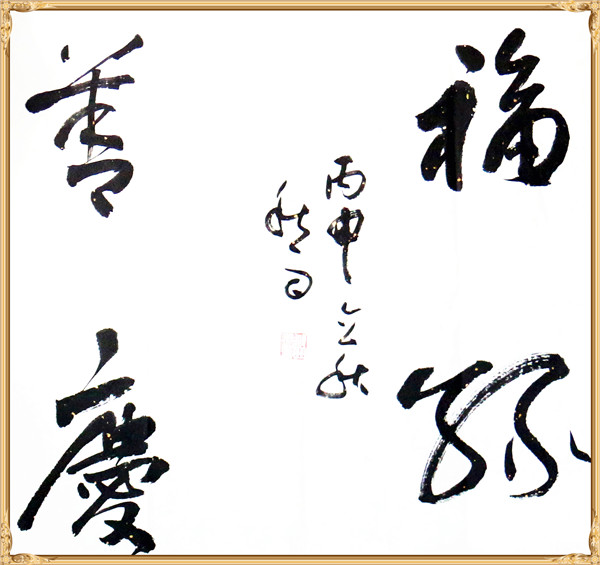 福緣
善慶
丙申立秋